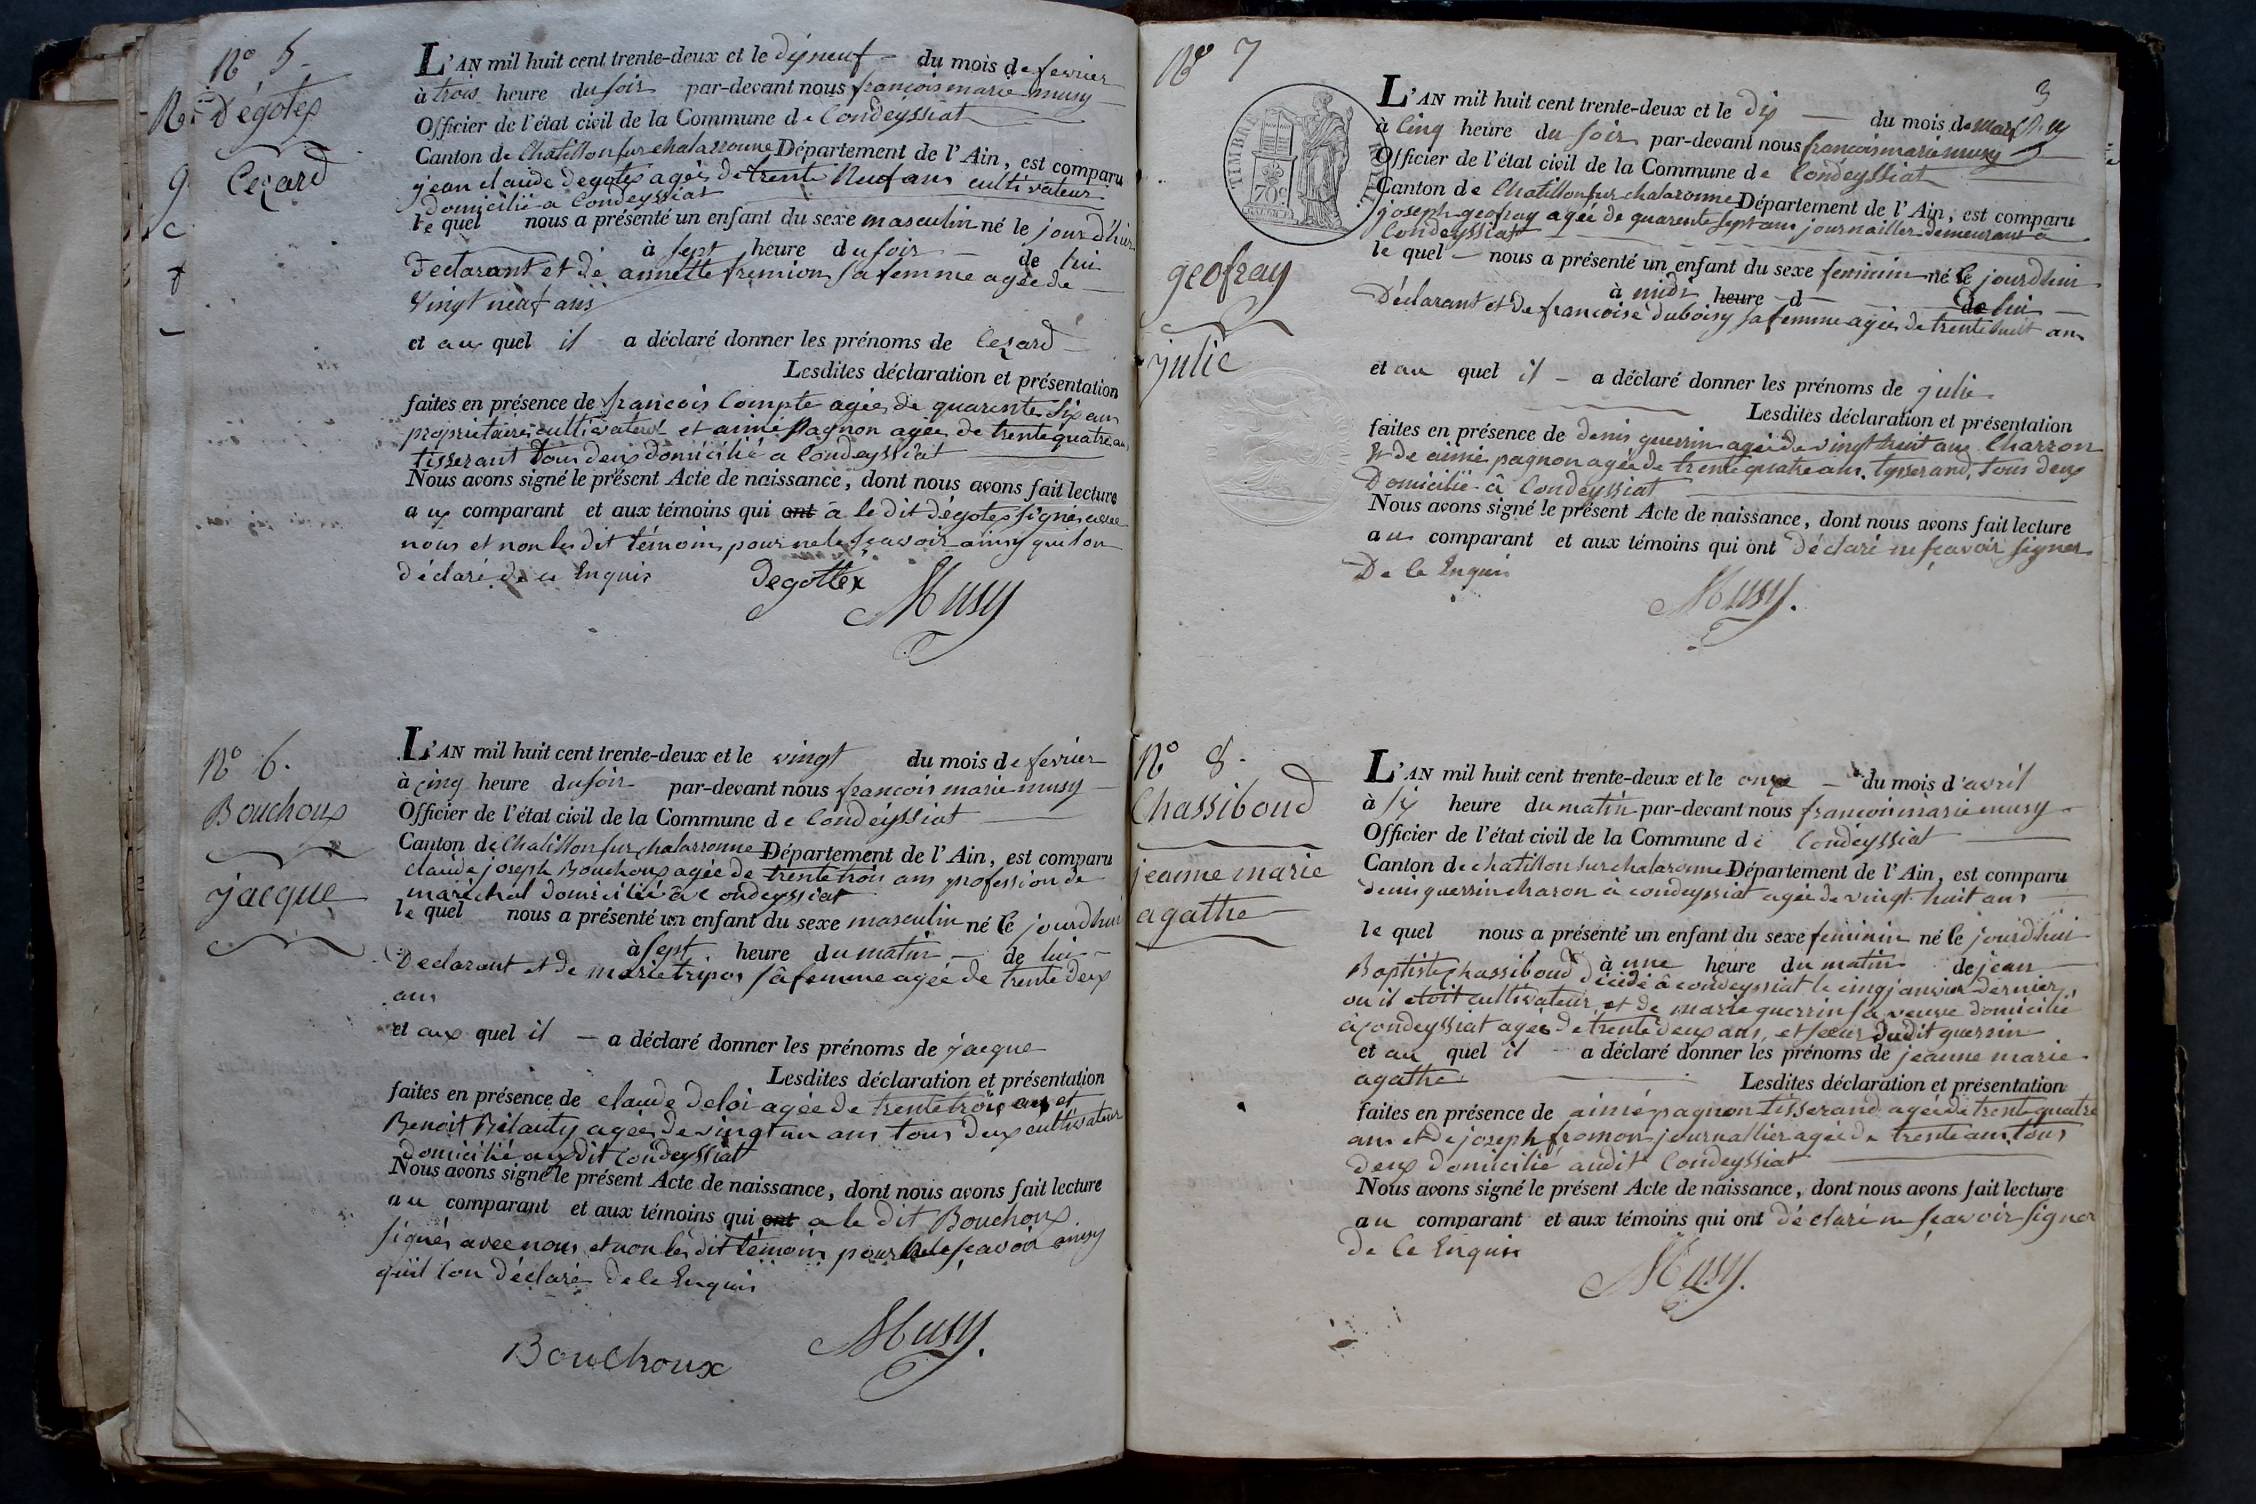 N° 5.
Dégotex
Cezard
L'AN mil huit cent trente-deux et le dixneuf du mois de fevrier
à trois heure du soir par-devant nous francois marie musy
Officier de l'état civil de la Commune de Condeyssiat
Canton de Chatillon sur chalaronne Département de l'Ain, est comparu
jean claude Degotex agée de trente Neuf ans cultivateur
domicilié a Condeyssiat
le quel nous a présenté un enfant du sexe masculin né le jour d'hier
à sept heure du soir de lui
Declarant et de annette fremion sa femme agée de
vingt neuf ans
et aux quel il a déclaré donner les prénoms de Cezard
Lesdites déclaration et présentation
faites en présence de francois Compte agée de quarente six ans
propriétaire cultivateur et aimé Pagnon agée de trente quatre ans
tisserant tous deux domicilié a Condeyssiat
Nous avons signé le présent Acte de naissance, dont nous avons fait lecture
aux comparant et aux témoins qui ont à le dit dégotex signés avec
nous et non les dit témoins pour ne le sçavoir ainsy quil on
déclaré de ce Enquis
Degottex Musy
N° 6.
Bouchoux
jacque
L'AN mil huit cent trente-deux et le vingt du mois de fevrier
à cinq heure du soir par-devant nous francois marie musy
Officier de l'état civil de la Commune de Condeyssiat
Canton de Chatillon sur chalaronne Département de l'Ain, est comparu
claude joseph Bouchoux agée de trente trois ans profession de
maréchal domicilié à Condeyssiat
le quel nous a présenté un enfant du sexe masculin né le jourdhui
à sept heure du matin de lui
Declarant et de marie tripos sa femme agée de trente deux
ans
et aux quel il a déclaré donner les prénoms de jacque
Lesdites déclaration et présentation
faites en présence de claude deloi agée de trente trois ans et
Benoit agée de vingt un ans tous deux cultivateur
domicilié audit Condeyssiat
Nous avons signé le présent Acte de naissance, dont nous avons fait lecture
au comparant et aux témoins qui ont a le dit Bouchoux
signés avec nous et non les dit témoins pour ne le sçavoir ainsy
quil lon déclaré de ce Enquis
Bouchoux Musy.
N° 7
3
TIMBRE ROYAL
70c
geofray
julie
L'AN mil huit cent trente-deux et le dix du mois de mars
à Cinq heure du soir par-devant nous francois marie musy
Officier de l'état civil de la Commune de Condeyssiat
Canton de Chatillon sur chalaronne Département de l'Ain, est comparu
joseph geofray agée de quarente sept ans journailler demeurant à
Condeyssiat
le quel nous a présenté un enfant du sexe feminin né le jourdhui
à midi heure d de lui
Déclarant et de francoise duboisy sa femme agée de trente huit ans
et au quel il a déclaré donner les prénoms de julie
Lesdites déclaration et présentation
faites en présence de denis guerrin agée de vingt huit ans Charron
& de aimé pagnon agée de trente quatre ans tysserand, tous deux
Domicilié à Condeyssiat
Nous avons signé le présent Acte de naissance, dont nous avons fait lecture
aux comparant et aux témoins qui ont déclaré ne sçavoir signer
De ce Enquis
Musy.
N° 8.
Chassiboud
jeanne marie
agathe
L'AN mil huit cent trente-deux et le onze du mois d'avril
à six heure du matin par-devant nous francois marie musy
Officier de l'état civil de la Commune de Condeyssiat
Canton de chatillon sur chalaronne Département de l'Ain, est comparu
denis guerrin charon à condeyssiat agée de vingt huit ans
le quel nous a présenté un enfant du sexe feminin né le jourdhui
à une heure du matin de jean
Baptiste Chassiboud décédé à condeyssiat le cinq janvier dernier,
ou il etoit cultivateur et de marie guerrin sa veuve domicilié
à Condeyssiat agée de trente deux ans, et sœur dudit guerrin
et au quel il a déclaré donner les prénoms de jeanne marie
agathe Lesdites déclaration et présentation
faites en présence de aimé pagnon tisserand agée de trente quatre
ans et de jozeph fromon journallier agée de trente ans, tous
deux domicilié audit Condeyssiat
Nous avons signé le présent Acte de naissance, dont nous avons fait lecture
au comparant et aux témoins qui ont déclaré ne sçavoir signer
de Ce Enquis
Musy.